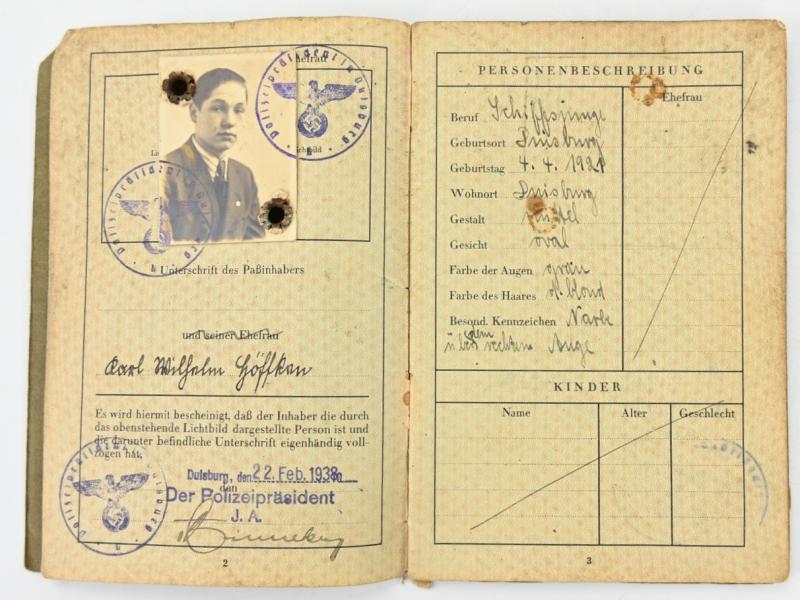 Ehefrau
Lichtbild
Polizeipräsident in Duisburg
Polizeipräsident in Duisburg
Unterschrift des Paßinhabers
und seiner Ehefrau
Karl Wilhelm Höffken
Es wird hiermit bescheinigt, daß der Inhaber die durch
das obenstehende Lichtbild dargestellte Person ist und
die darunter befindliche Unterschrift eigenhändig voll-
zogen hat.
Polizeipräsident in Duisburg
Duisburg, den 22. Feb. 1938
den
Der Polizeipräsident
J. A.
2
PERSONENBESCHREIBUNG
Ehefrau
Beruf Schiffsjunge
Geburtsort Duisburg
Geburtstag 4. 4. 1921
Wohnort Duisburg
Gestalt mittel
Gesicht oval
Farbe der Augen grau
Farbe des Haares d. blond
Besond. Kennzeichen Narbe
über dem rechten Auge
KINDER
Name Alter Geschlecht
3